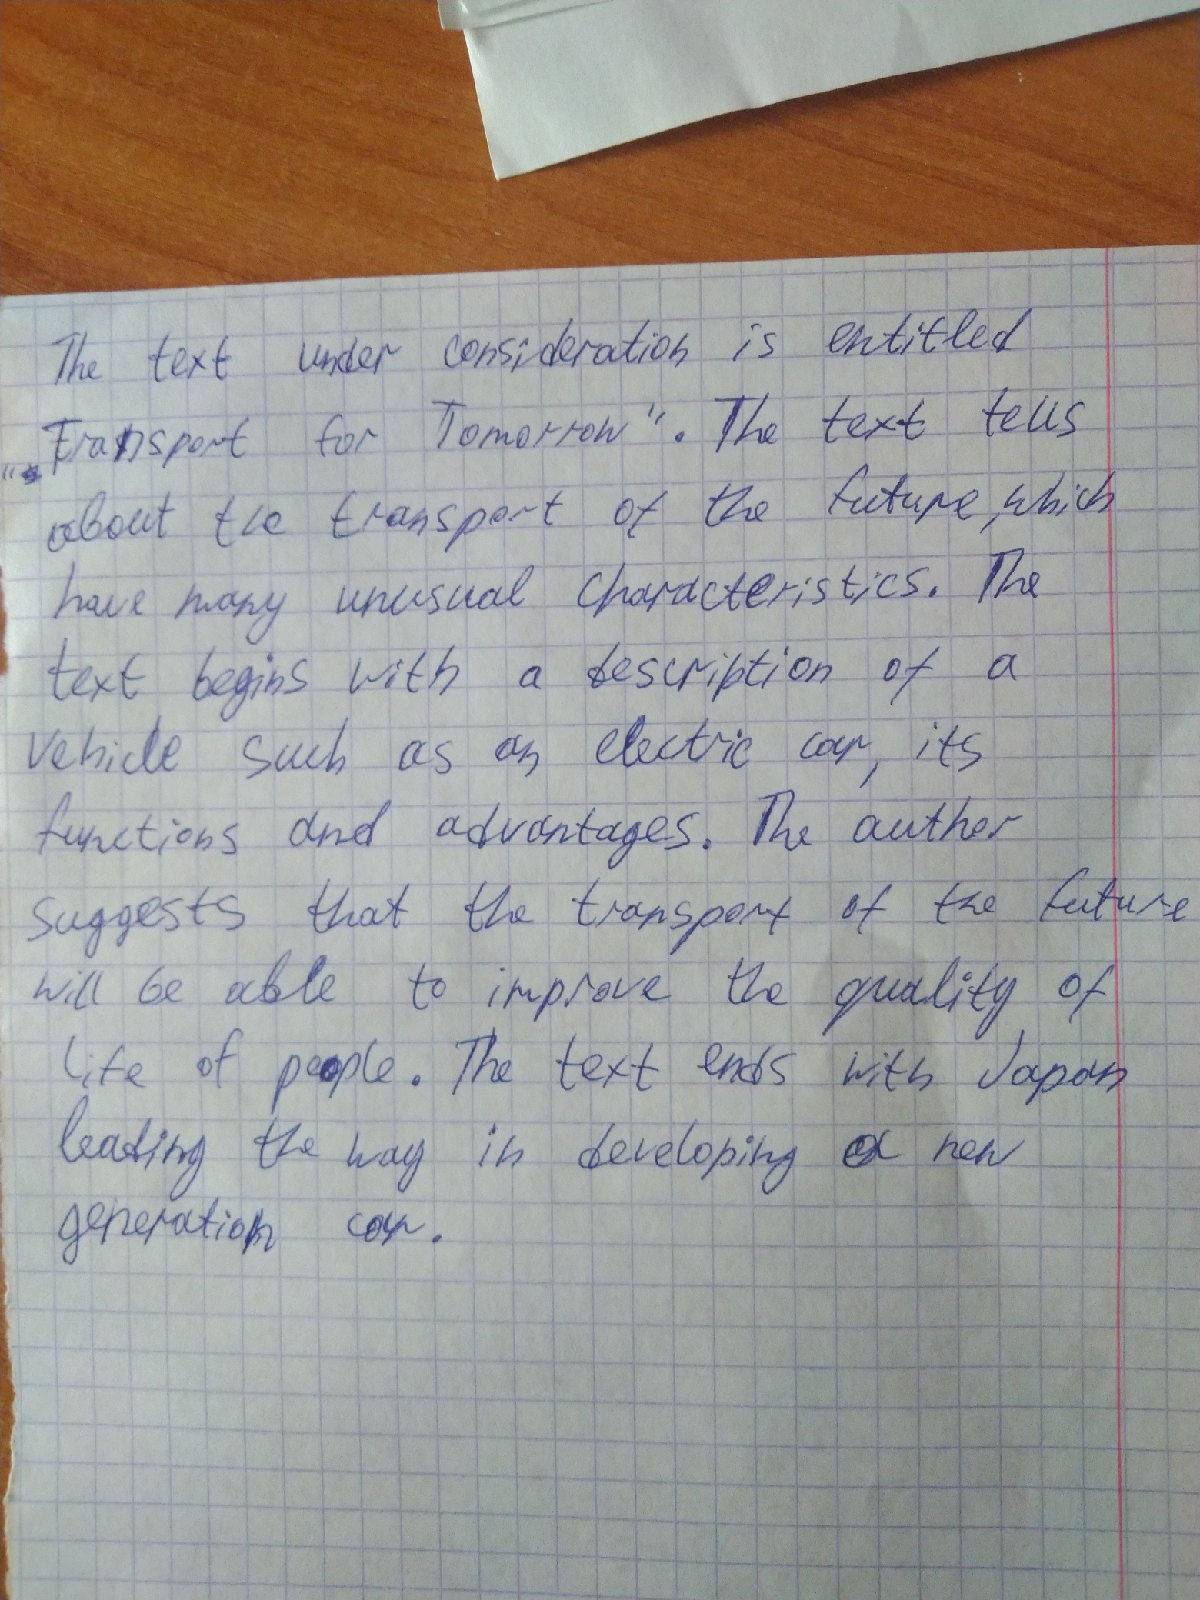 The text under consideration is entitled
"Transport for Tomorrow". The text tells
about the transport of the future, which
have many unusual characteristics. The
text begins with a description of a
vehicle such as an electric car, its
functions and advantages. The author
suggests that the transport of the future
will be able to improve the quality of
life of people. The text ends with Japan
leading the way in developing a new
generation car.